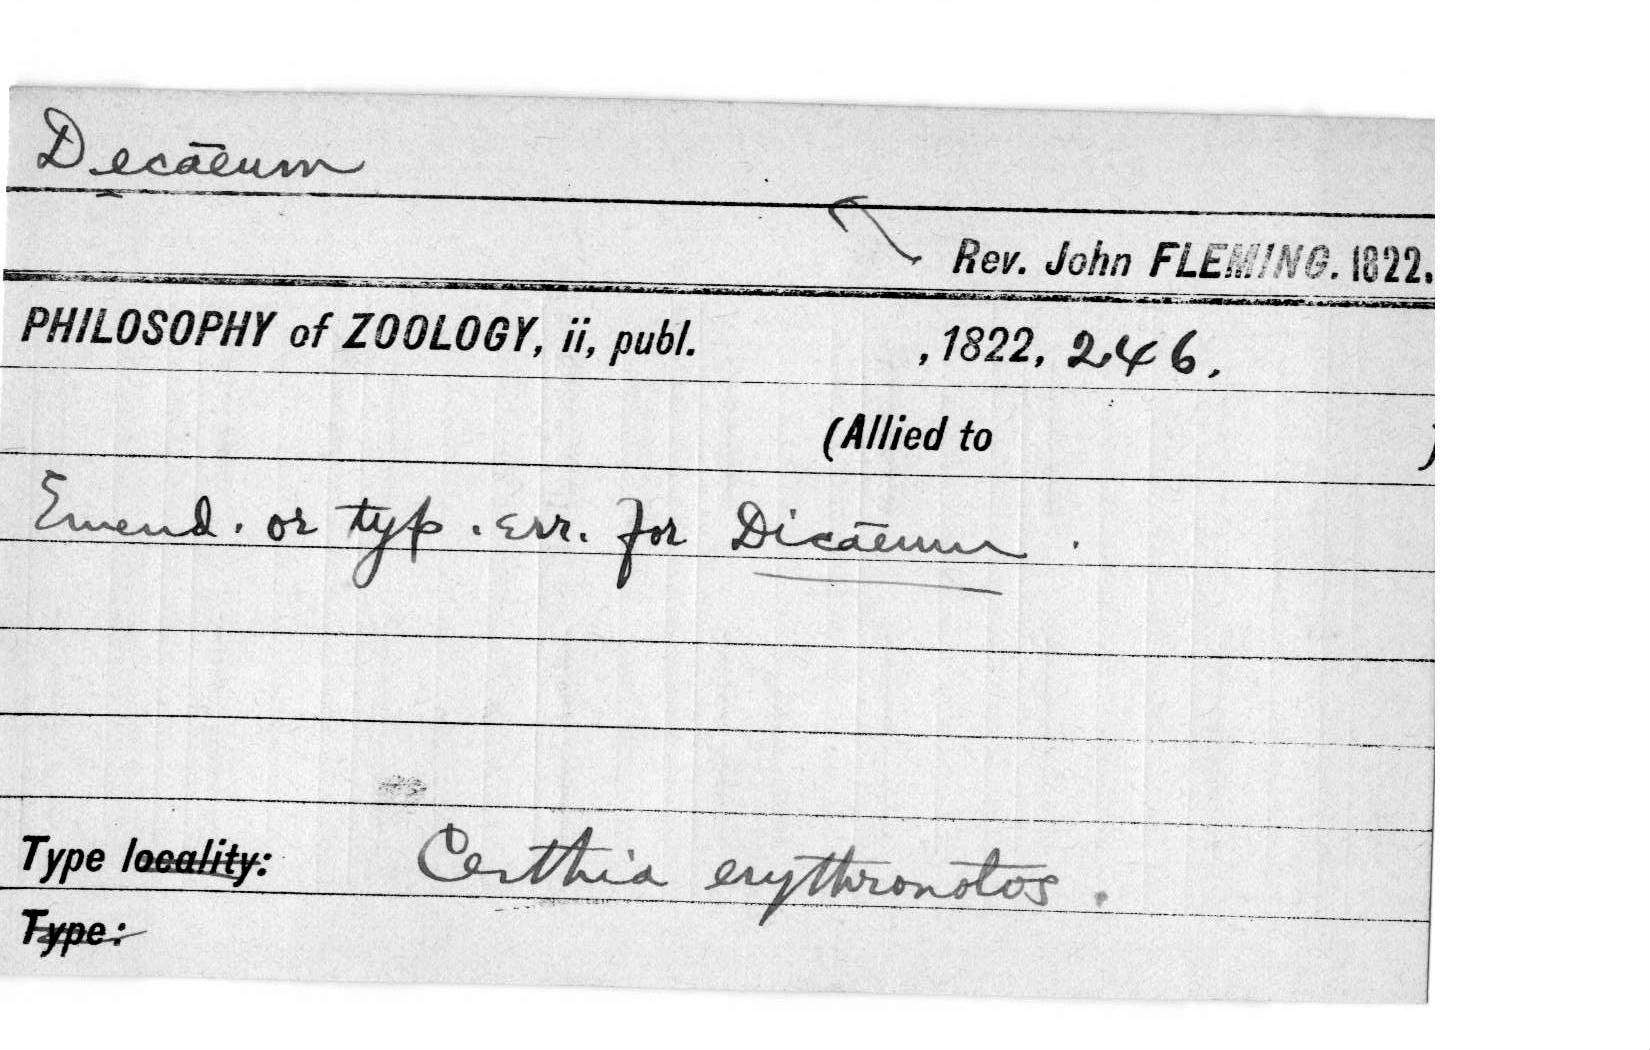 Decāeum
Rev. John FLEMING. 1822.
PHILOSOPHY of ZOOLOGY, ii, publ. , 1822, 246.
(Allied to )
Emend. or typ. err. for Dicāeum.
Type locality: Certhia erythronotos.
Type: